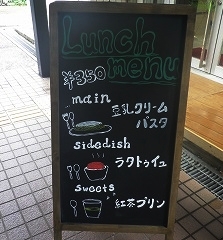 Lunch
menu
¥350
main
豆乳クリーム
パスタ
sidedish
ラタトゥイユ
sweets
紅茶プリン